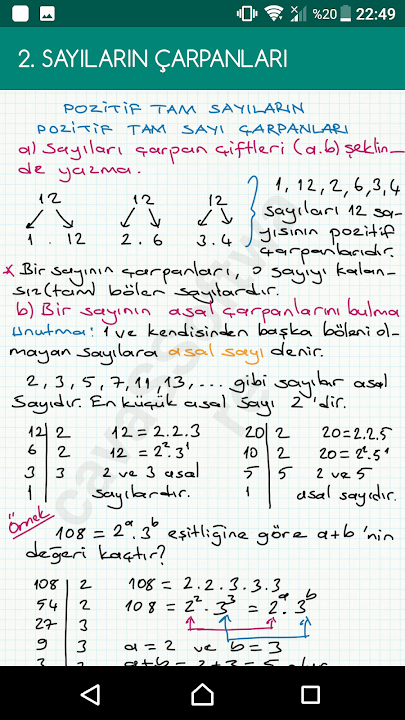 %20 22:49
2. SAYILARIN ÇARPANLARI
POZİTİF TAM SAYILARIN
POZİTİF TAM SAYI ÇARPANLARI
a) Sayıları çarpan çiftleri (a.b) şeklin-
de yazma.
12 12 12
1 . 12 2 . 6 3 . 4
1, 12, 2, 6, 3, 4
sayıları 12 sa-
yısının pozitif
çarpanlarıdır.
* Bir sayının çarpanları, o sayıyı kalan-
sız (tam) böler sayılardır.
b) Bir sayının asal çarpanlarını bulma
Unutma: 1 ve kendisinden başka böleni ol-
mayan sayılara asal sayı denir.
2, 3, 5, 7, 11, 13, ... gibi sayılar asal
sayıdır. En küçük asal sayı 2'dir.
12 | 2 12 = 2.2.3 20 | 2 20 = 2.2.5
6 | 2 12 = 2².3¹ 10 | 2 20 = 2².5¹
3 | 3 2 ve 3 asal 5 | 5 2 ve 5
1 | sayılardır. 1 | asal sayıdır.
Örnek
108 = 2ᵃ.3ᵇ eşitliğine göre a+b 'nin
değeri kaçtır?
108 | 2 108 = 2.2.3.3.3
54 | 2 108 = 2².3³ = 2ᵃ.3ᵇ
27 | 3
9 | 3 a = 2 ve b = 3